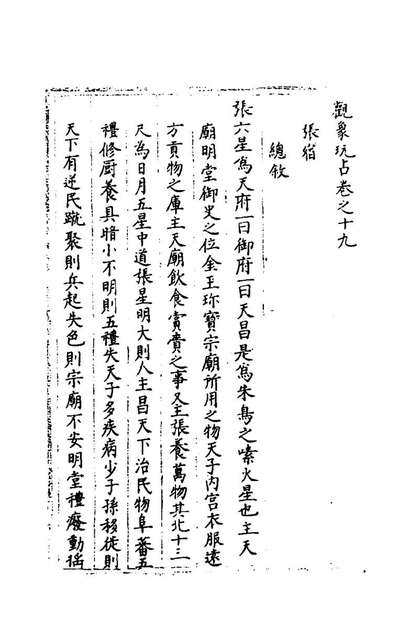 觀象玩占卷之十九
張宿
總敘
張六星為天府一曰御府一曰天昌是為朱鳥之嗉火星也主天
廟明堂御史之位金玉珍寶宗廟所用之物天子內宮衣服遠
方貢物之庫主天廟飲食賞賚之事又主張養萬物其北十三
尺為日月五星中道張星明大則人主昌天下治民物阜蕃五
禮修厨養具暗小不明則五禮失天子多疾病少子孫移徙則
天下有逆民蹴聚則兵起失色則宗廟不安明堂禮癈動搖